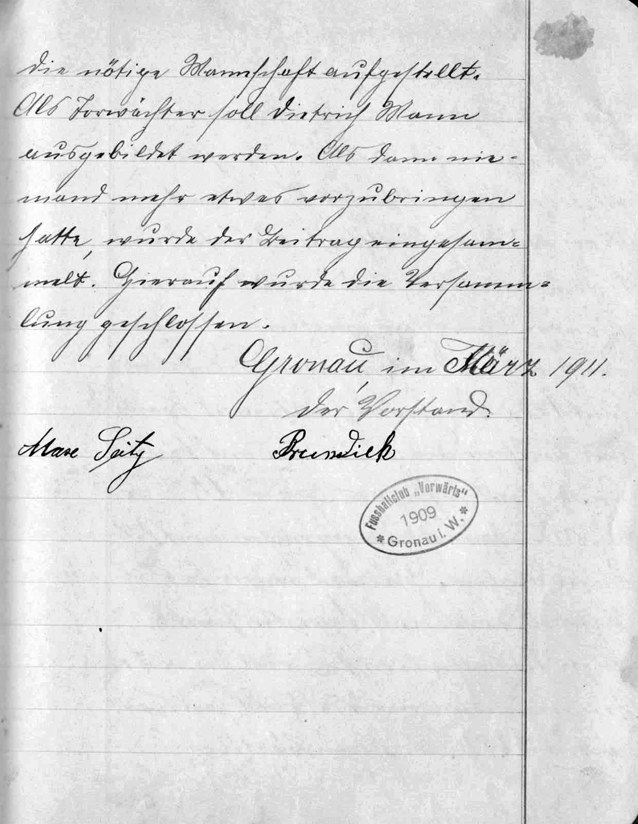 die nötige Mannschaft aufgestellt.
Als Torwächter soll Dietrich Mann
ausgebildet werden. Als dann nie-
mand mehr etwas vorzubringen
hatte, wurde der Beitrag eingesam-
melt. Hierauf wurde die Versamm-
lung geschlossen.
Gronau, im März 1911.
Der Vorstand.
Max Seitz
Fussballclub „Vorwärts“
1909
* Gronau i. W. *